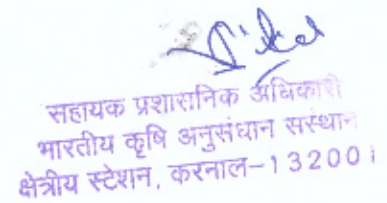 सहायक प्रशासनिक अधिकारी
भारतीय कृषि अनुसंधान सस्थान
क्षेत्रीय स्टेशन, करनाल-132001